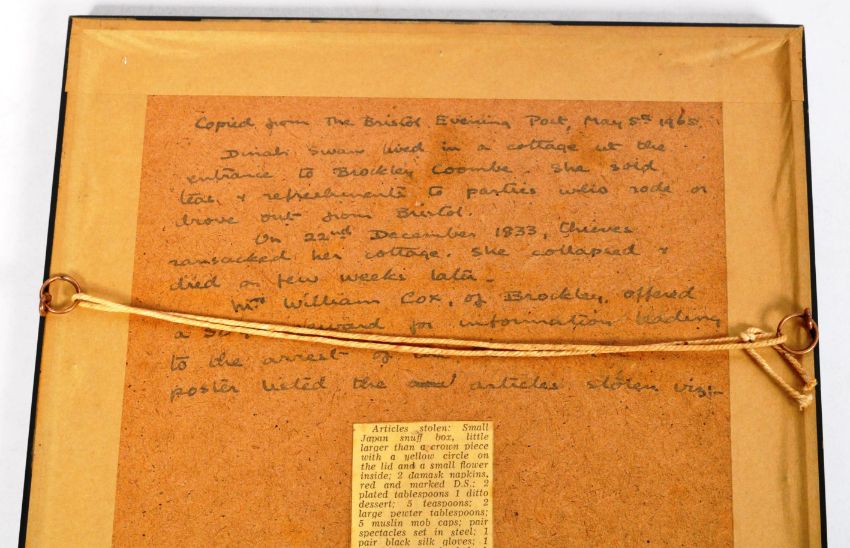 Copied from The Bristol Evening Post, May 5th 1965.
Dinah Swan lived in a cottage at the
entrance to Brockley Coombe. She sold
teas & refreshments to parties who rode or
drove out from Bristol.
On 22nd December 1833, thieves
ransacked her cottage. She collapsed &
died a few weeks later.
William Cox, of Brockley, offered
a reward for information leading
to the arrest of
poster listed the articles stolen viz:-
Articles stolen: Small
Japan snuff box, little
larger than a crown piece
with a yellow circle on
the lid and a small flower
inside; 2 damask napkins,
red and marked D.S.; 2
plated tablespoons 1 ditto
dessert; 5 teaspoons; 2
large pewter tablespoons;
5 muslin mob caps; pair
spectacles set in steel; 1
pair black silk gloves; 1